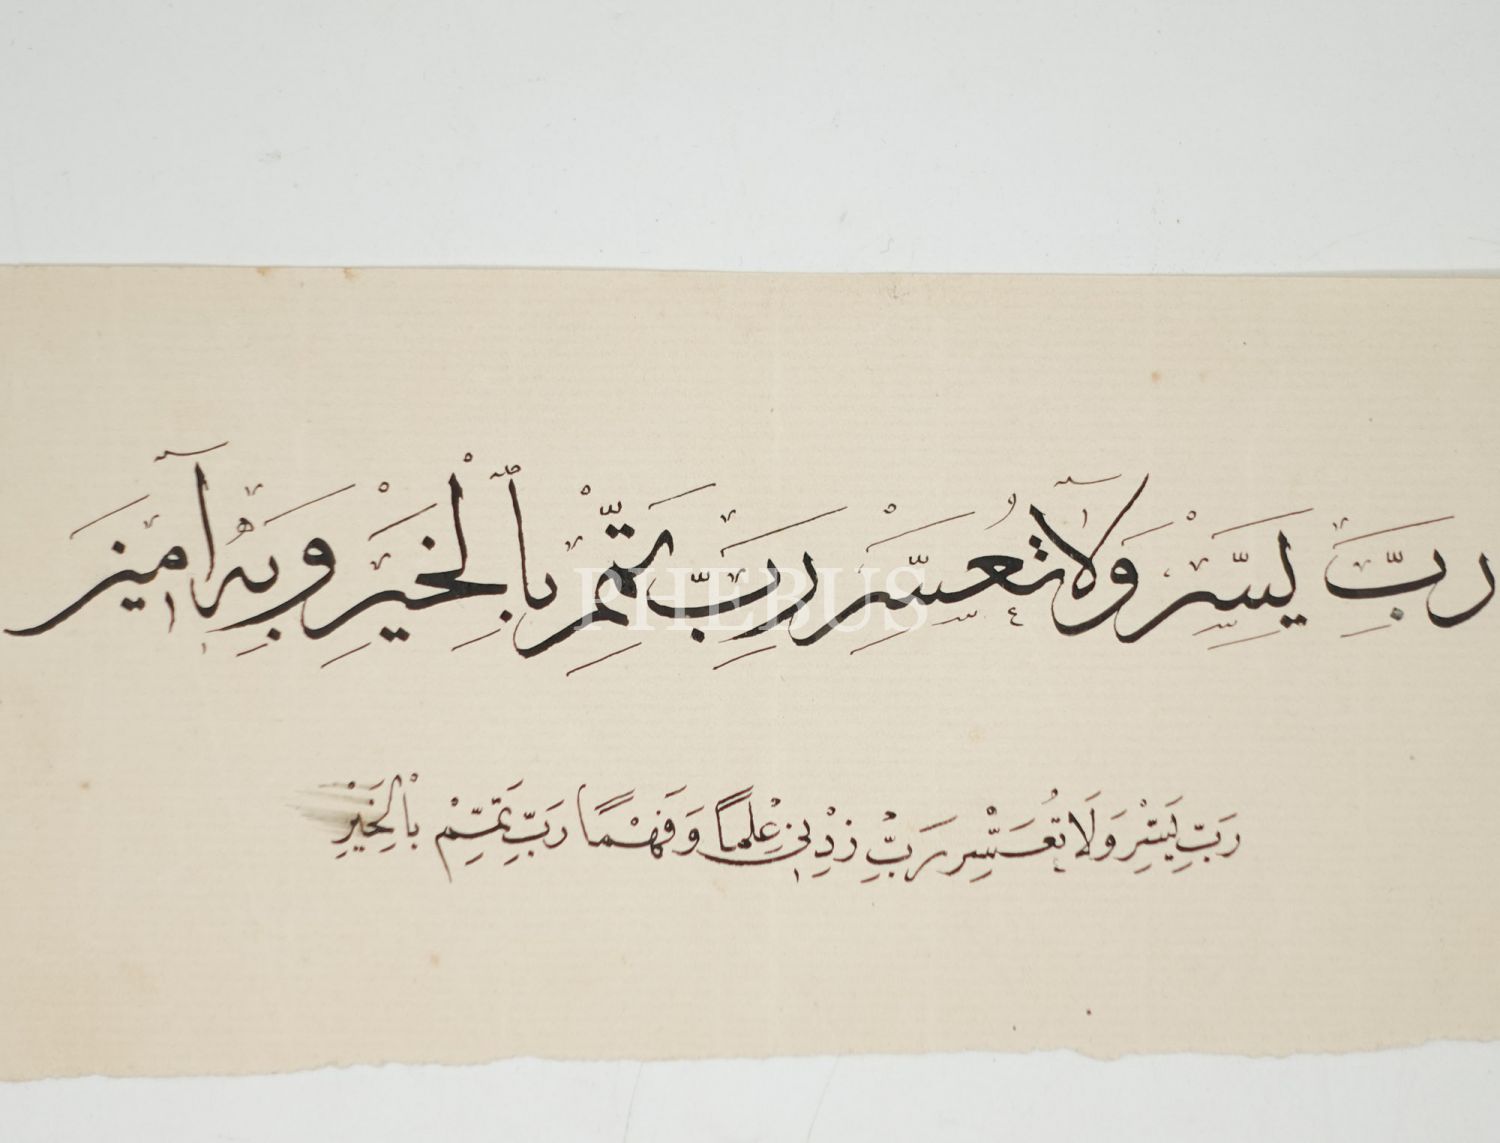 رَبِّ يَسِّرْ وَلَا تُعَسِّرْ رَبِّ تَمِّمْ بِالْخَيْرِ وَبِهِ آمِينَ
PHEBUS
رَبِّ يَسِّرْ وَلَا تُعَسِّرْ رَبِّ زِدْنِي عِلْمًا وَفَهْمًا رَبِّ تَمِّمْ بِالْخَيْرِ